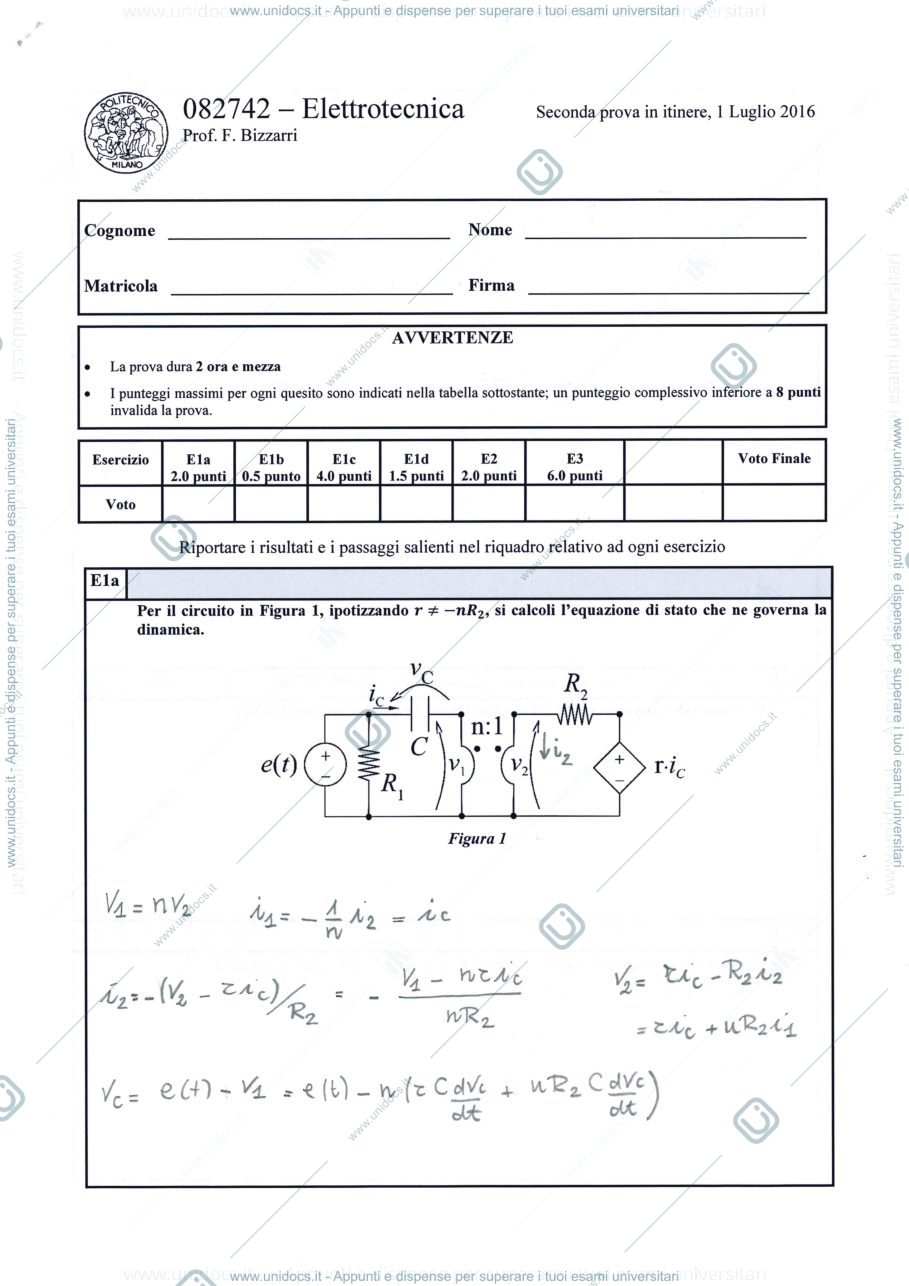 www.unidocs.it - Appunti e dispense per superare i tuoi esami universitari
POLITECNICO
MILANO
082742 – Elettrotecnica
Seconda prova in itinere, 1 Luglio 2016
Prof. F. Bizzarri
Cognome Nome
Matricola Firma
AVVERTENZE
• La prova dura 2 ora e mezza
• I punteggi massimi per ogni quesito sono indicati nella tabella sottostante; un punteggio complessivo inferiore a 8 punti
invalida la prova.
Esercizio E1a E1b E1c E1d E2 E3 Voto Finale
2.0 punti 0.5 punto 4.0 punti 1.5 punti 2.0 punti 6.0 punti
Voto
Riportare i risultati e i passaggi salienti nel riquadro relativo ad ogni esercizio
E1a
Per il circuito in Figura 1, ipotizzando r ≠ −nR₂, si calcoli l'equazione di stato che ne governa la
dinamica.
v_C
i_C
R₂
n:1
C
i₂
e(t) + − R₁ v₁ v₂ + − r·i_C
Figura 1
V₁ = nV₂ i₁ = − 1/n i₂ = ic
i₂ = −(V₂ − ric)/R₂ = − (V₁ − nric)/(nR₂) V₂ = ric − R₂i₂
= ric + nR₂i₁
Vc = e(t) − V₁ = e(t) − n (r C dVc/dt + nR₂ C dVc/dt)
www.unidocs.it - Appunti e dispense per superare i tuoi esami universitari